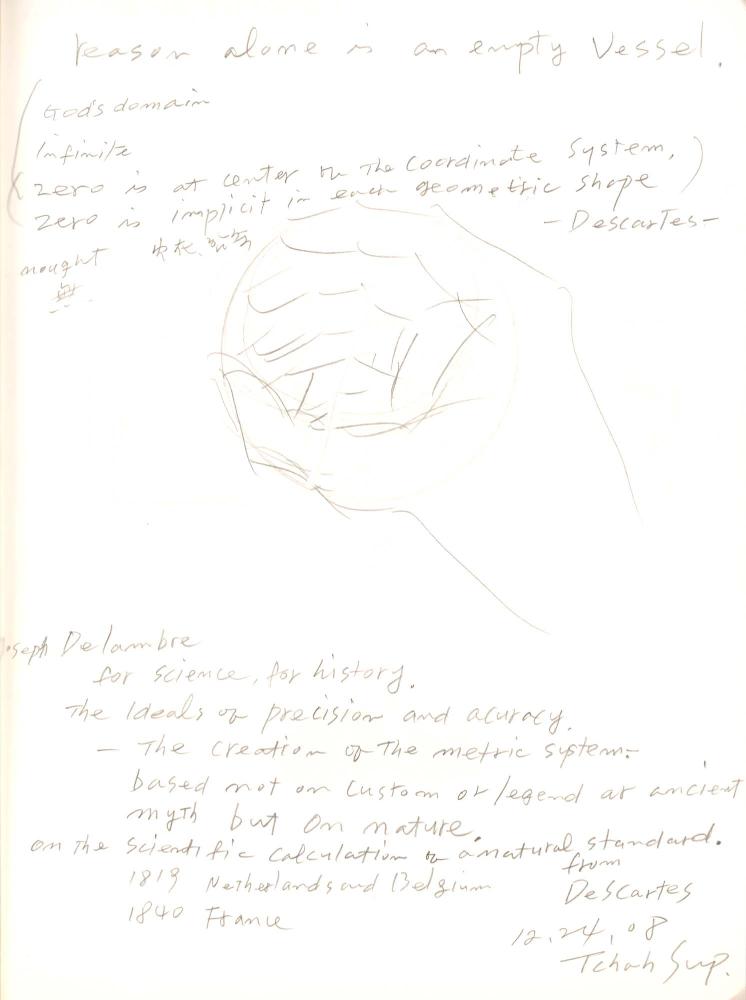 reason alone is an empty Vessel.
God's domain
Infinite
zero is at center on The Coordinate System,
zero is implicit in each geometric shape
- Descartes -
nought
無
Joseph Delambre
for science, for history.
The Ideals of precision and acuracy.
- The creation of The metric system:
based not on Custom or legend or ancient
myth but on nature.
on The Scientific calculation of a natural standard.
from
1819 Netherlands and Belgium
Descartes
1840 France
12.24, 08
Tchah Sup.